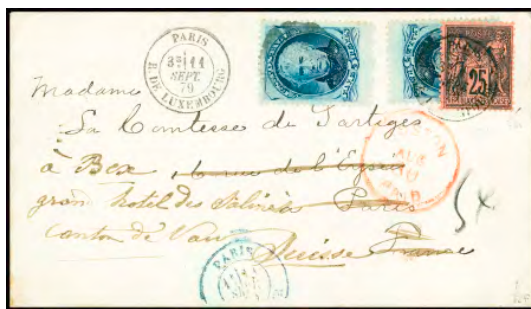 PARIS
3E 11
SEPT.
79
R. DE LUXEMBOURG
25
BOSTON
AUG
PAID
Madame
La Comtesse de Sartiges
à Bex 16 rue de l'Elysée
grand hotel des Salines Paris
canton de Vaud Suisse France
PARIS